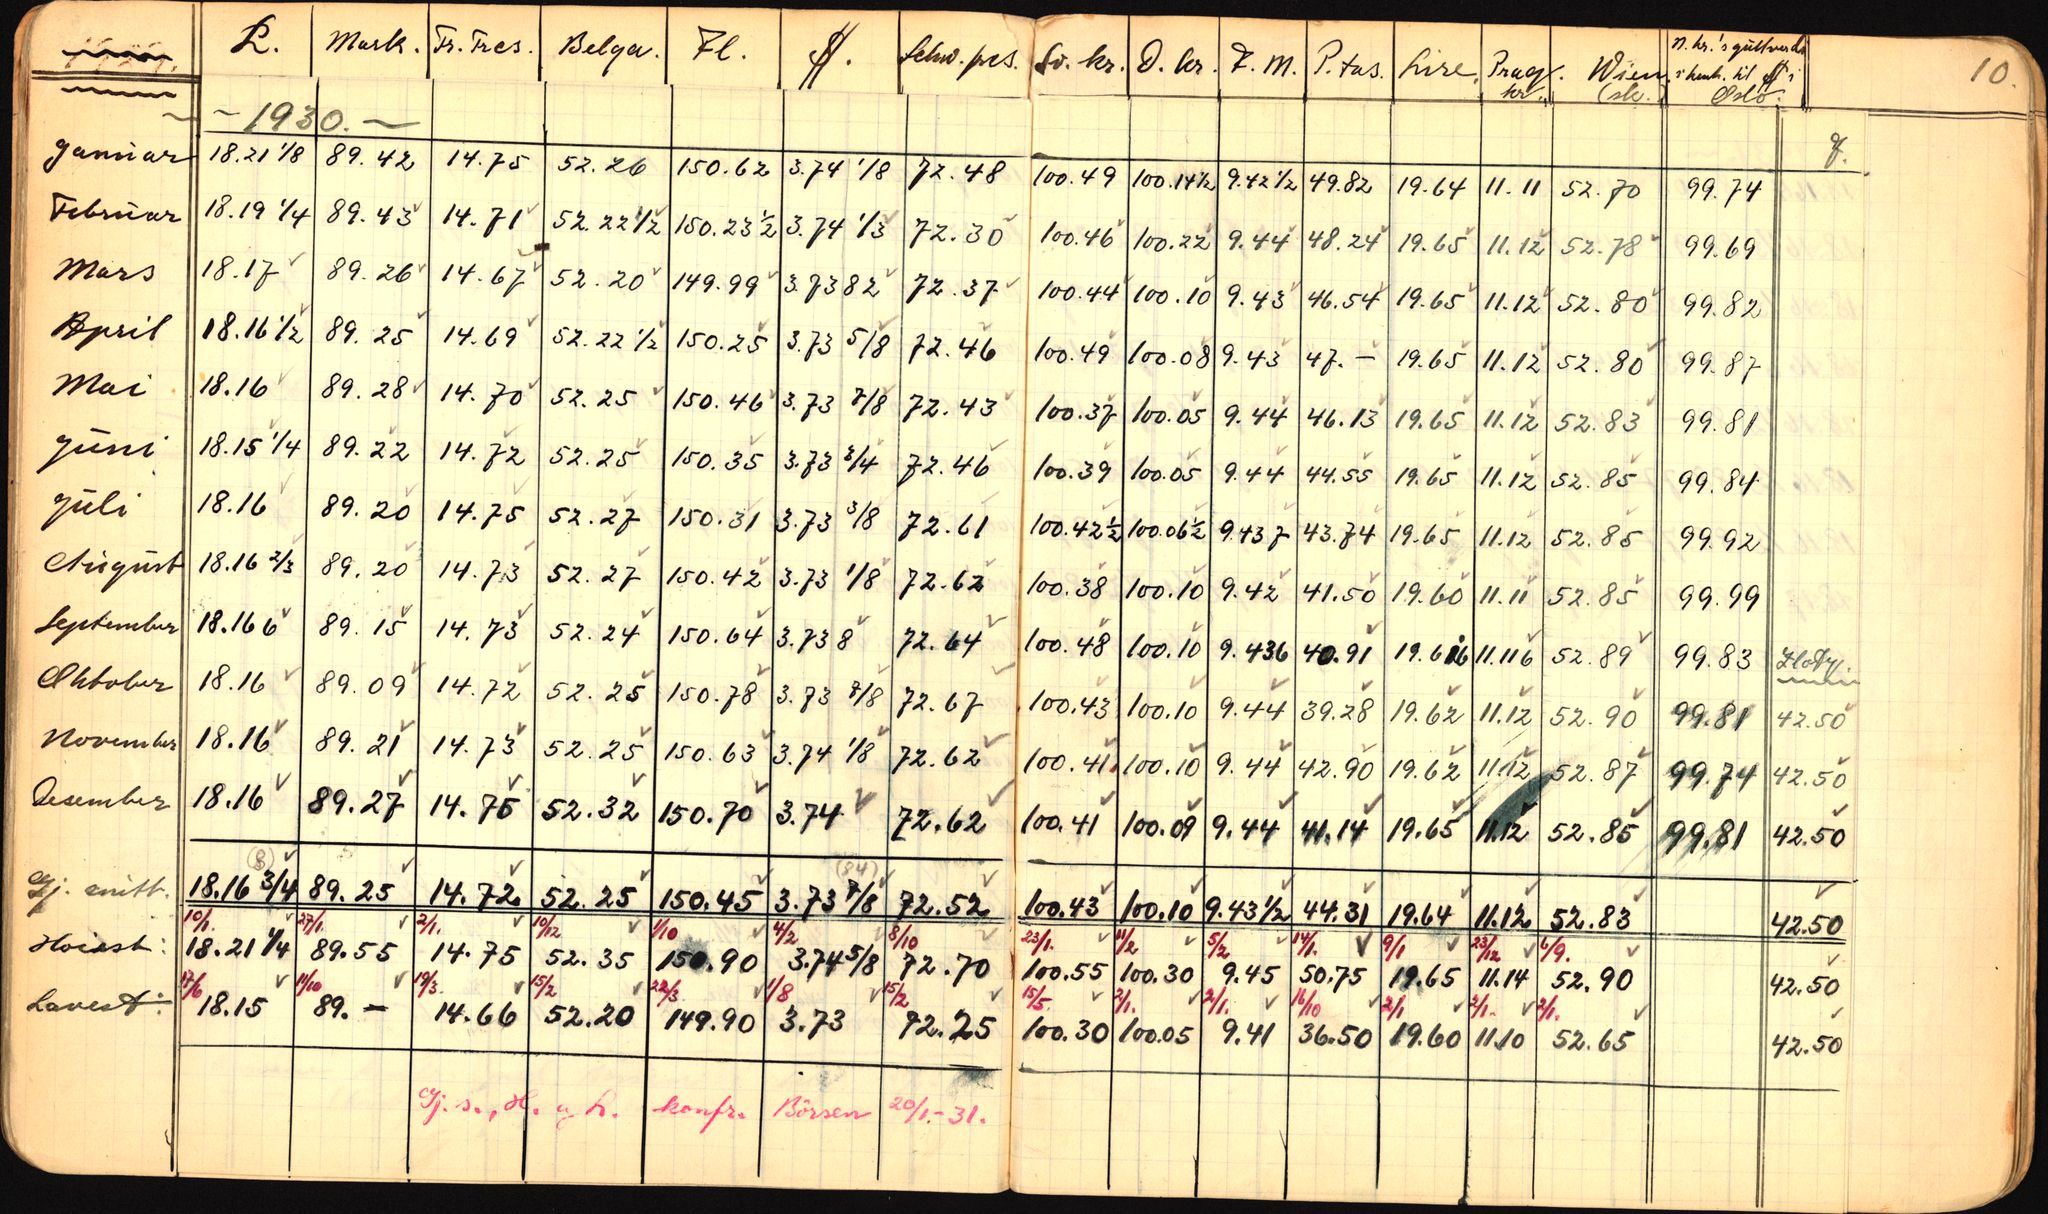 £. Mark. Fr. Frcs. Belga. Fl. $. Schw. frcs. Sv. kr. D. kr. F. M. P.tas. Lire. Prag kr. Wien (sk.) N. kr.'s gullverdi i henh. til $'s i Oslo. 10.
~ 1930. ~
Januar 18.21 1/8 89.42 14.75 52.26 150.62 3.74 1/8 72.48 100.49 100.14½ 9.42 1/2 49.82 19.64 11.11 52.70 99.74
Februar 18.19 1/4 89.43 14.71 52.22 1/2 150.23½ 3.74 1/3 72.30 100.46 100.22 9.44 48.24 19.65 11.12 52.78 99.69
Mars 18.17 89.26 14.67 52.20 149.99 3.7382 72.37 100.44 100.10 9.43 46.54 19.65 11.12 52.80 99.82
April 18.16 1/2 89.25 14.69 52.22 1/2 150.25 3.73 5/8 72.46 100.49 100.08 9.43 47.— 19.65 11.12 52.80 99.87
Mai 18.16 89.28 14.70 52.25 150.46 3.73 7/8 72.43 100.37 100.05 9.44 46.13 19.65 11.12 52.83 99.81
Juni 18.15 1/4 89.22 14.72 52.25 150.35 3.73 3/4 72.46 100.39 100.05 9.44 44.55 19.65 11.12 52.85 99.84
Juli 18.16 89.20 14.75 52.27 150.31 3.73 3/8 72.61 100.42½ 100.06½ 9.437 43.74 19.65 11.12 52.85 99.92
August 18.16 2/3 89.20 14.73 52.27 150.42 3.73 1/8 72.62 100.38 100.10 9.42 41.50 19.60 11.11 52.85 99.99
September 18.166 89.15 14.73 52.24 150.64 3.738 72.64 100.48 100.10 9.436 40.91 19.616 11.116 52.89 99.83 Zloty.
Oktober 18.16 89.09 14.72 52.25 150.78 3.73 7/8 72.67 100.43 100.10 9.44 39.28 19.62 11.12 52.90 99.81 42.50
November 18.16 89.21 14.73 52.25 150.63 3.74 1/8 72.62 100.41 100.10 9.44 42.90 19.62 11.12 52.87 99.74 42.50
Desember 18.16 89.27 14.75 52.32 150.70 3.74 72.62 100.41 100.09 9.44 41.14 19.65 11.12 52.85 99.81 42.50
(8) (84)
Gj. snitt. 18.16 3/4 89.25 14.72 52.25 150.45 3.73 7/8 72.52 100.43 100.10 9.43 1/2 44.31 19.64 11.12 52.83 42.50
10/1. 27/1. 2/1. 10/12 1/10 4/2 8/10 23/1. 11/2 5/2 14/1. 9/1 23/12 6/9.
Høiest: 18.21 1/4 89.55 14.75 52.35 150.90 3.74 5/8 72.70 100.55 100.30 9.45 50.75 19.65 11.14 52.90 42.50
17/6 11/10 19/3 15/2 22/3 1/8 15/2 15/5. 2/1. 2/1. 16/10 2/1 2/1. 2/1.
Lavest: 18.15 89.— 14.66 52.20 149.90 3.73 72.25 100.30 100.05 9.41 36.50 19.60 11.10 52.65 42.50
Gj. s., H. og L. konfr. Börsen 20/1.-31.